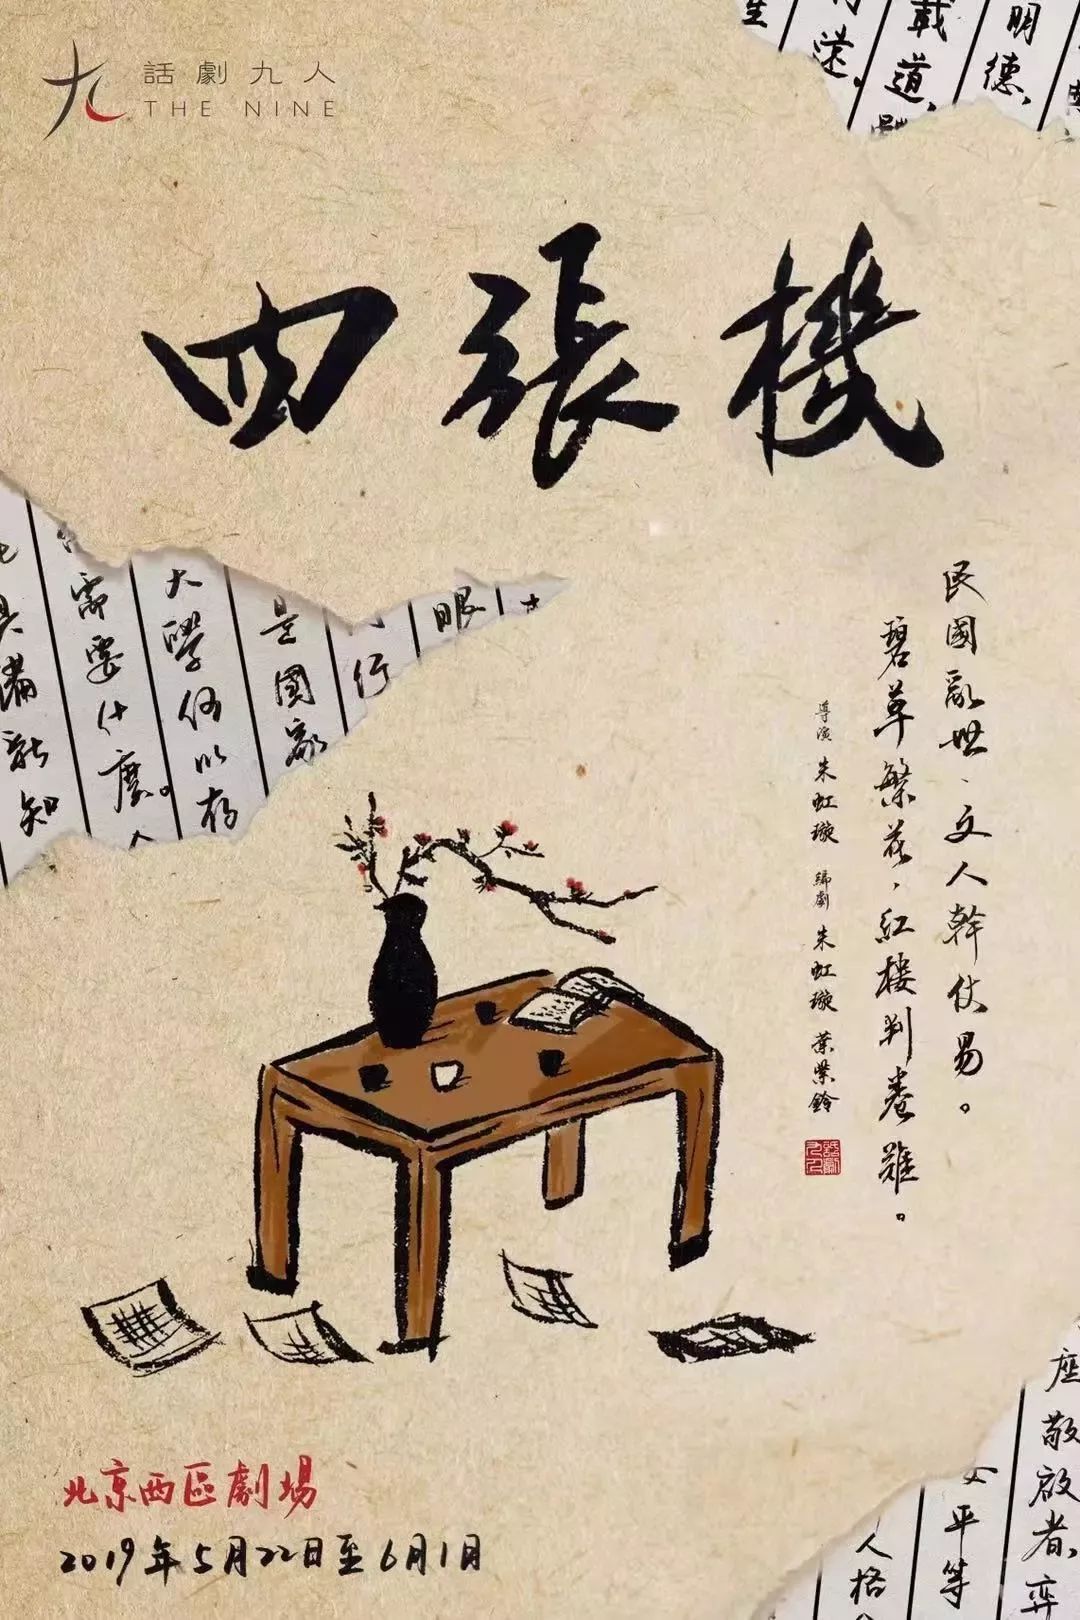 話劇九人
THE NINE
載道,
明德,
四張機
民國亂世、文人幹仗易。
碧草繁花、紅樓判卷難。
導演 朱虹璇 編劇 朱虹璇 葉紫鈴
眼
行
是國家
大學何以存
需要什麼。
具備新知
座敬啟者,弈
平等
人格
北京西區劇場
2019年5月22日至6月1日